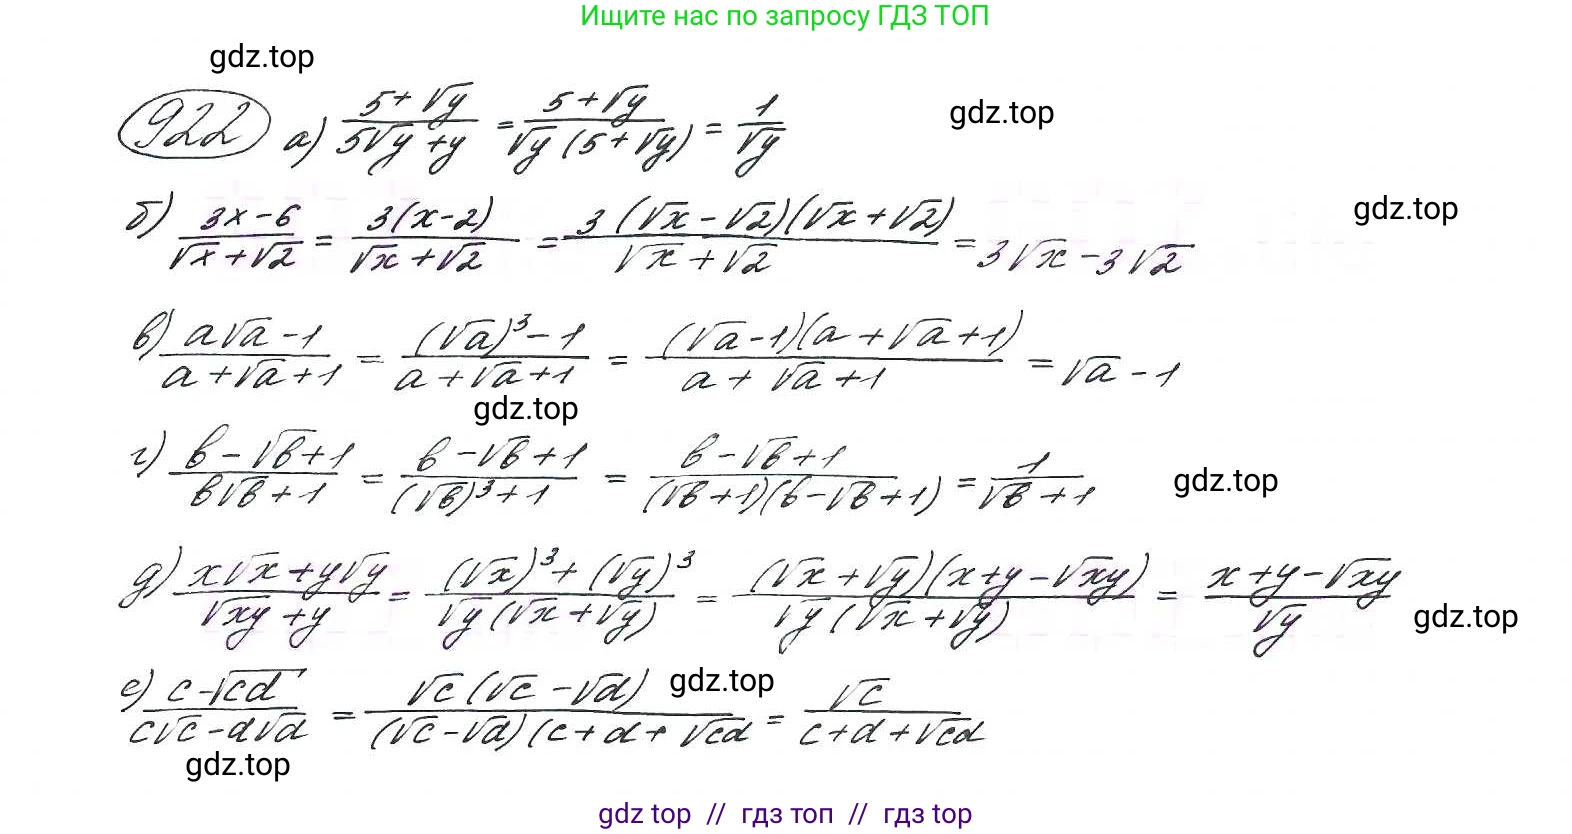 Ищите нас по запросу ГДЗ ТОП
gdz.top
922 а) (5+√y)/(5√y+y) = (5+√y)/(√y(5+√y)) = 1/√y
gdz.top
б) (3x-6)/(√x+√2) = 3(x-2)/(√x+√2) = 3(√x-√2)(√x+√2)/(√x+√2) = 3√x-3√2
gdz.top
в) (a√a-1)/(a+√a+1) = ((√a)³-1)/(a+√a+1) = (√a-1)(a+√a+1)/(a+√a+1) = √a-1
gdz.top
г) (b-√b+1)/(b√b+1) = (b-√b+1)/((√b)³+1) = (b-√b+1)/((√b+1)(b-√b+1)) = 1/(√b+1)
gdz.top
д) (x√x+y√y)/(√xy+y) = ((√x)³+(√y)³)/(√y(√x+√y)) = (√x+√y)(x+y-√xy)/(√y(√x+√y)) = (x+y-√xy)/√y
gdz.top
е) (c-√cd)/(c√c-d√d) = √c(√c-√d)/((√c-√d)(c+d+√cd) = √c/(c+d+√cd)
gdz.top
gdz.top
gdz top // гдз топ // gdz top